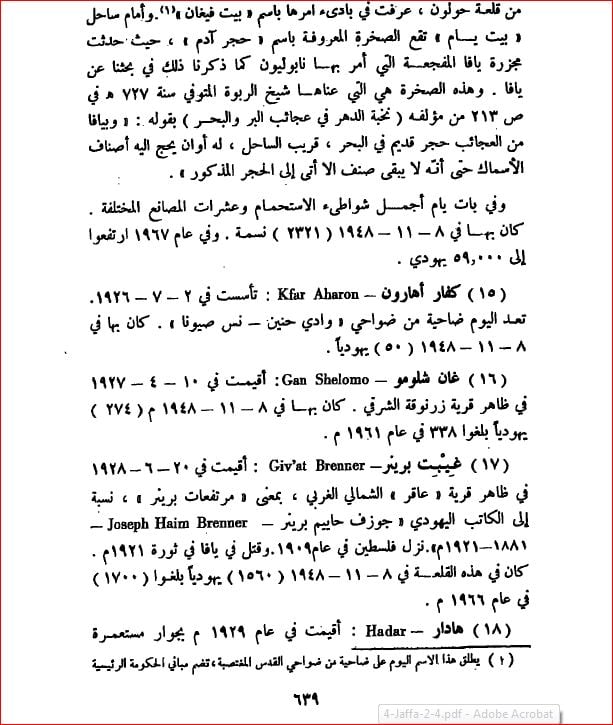 من قلعة حولون ، عرفت في بادىء امرها باسم « بيت فيغان »(١).وأمام ساحل
« بيت يــام » تقع الصخرة المعروفة باسم « حجر آدم » ، حيث حدثت
مجزرة يافا المفجعـة التي أمر بهـا نابوليون كما ذكرنا ذلك في بحثنا عن
يافا . وهذه الصخرة هي التي عناهـا شيخ الربوة المتوفي سنة ٧٢٧ هـ في
ص ٢١٣ من مؤلفـه ( نخبة الدهر في عجائب البر والبحـر ) بقوله : « وبيافا
من العجائب حجر قديم في البحر ، قريب الساحل ، له أوان يحج اليه أصناف
الأسماك حتى أنّـه لا يبقى صنف الا أتى إلى الحجر المذكور » .
وفي بات يام أجمـل شواطىء الاستحمام وعشرات المصانع المختلفة .
كان بهـا في ٨ – ١١ – ١٩٤٨ ( ٢٣٢١ ) نسمة . وفي عام ١٩٦٧ ارتفعوا
إلى ٥٩,٠٠٠ يهودي .
(١٥) كفار أهارون – Kfar Aharon : تأسست في ٢ – ٧ – ١٩٢٦.
تعد اليوم ضاحية من ضواحي « وادي حنين – نس صيونا » . كان بها في
٨ – ١١ – ١٩٤٨ ( ٥٠ ) يهودياً .
(١٦) غان شلومو – Gan Shelomo : أقيمت في ١٠ – ٤ – ١٩٢٧
في ظاهر قرية زرنوقة الشرقي . كان بهـا في ٨ – ١١ – ١٩٤٨ م ( ٢٧٤ )
يهودياً بلغوا ٣٣٨ في عام ١٩٦١ م .
(١٧) غيبت برينر – Giv'at Brenner : أقيمت في ٢٠ – ٦ – ١٩٢٨
في ظاهر قرية « عاقر » الشمالي الغربي ، بمعنى « مرتفعات برينر » ، نسبة
إلى الكاتب اليهودي « جوزف حاييم برينر – Joseph Haim Brenner –
١٨٨١–١٩٢١م».نزل فلسطين في عام١٩٠٩.وقتل في يافا في ثورة ١٩٢١م .
كان في هذه القلعـة في ٨ – ١١ – ١٩٤٨ (١٥٦٠) يهودياً بلغـوا (١٧٠٠)
في عام ١٩٦٦ م .
(١٨) هادار – Hadar : أقيمت في عام ١٩٢٩ م بجوار مستعمرة
(١) يطلق هذا الاسم اليوم على ضاحية من ضواحي القدس المغتصبة ، تضم مباني الحكومة الرئيسية
٦٣٩
4-Jaffa-2-4.pdf - Adobe Acrobat